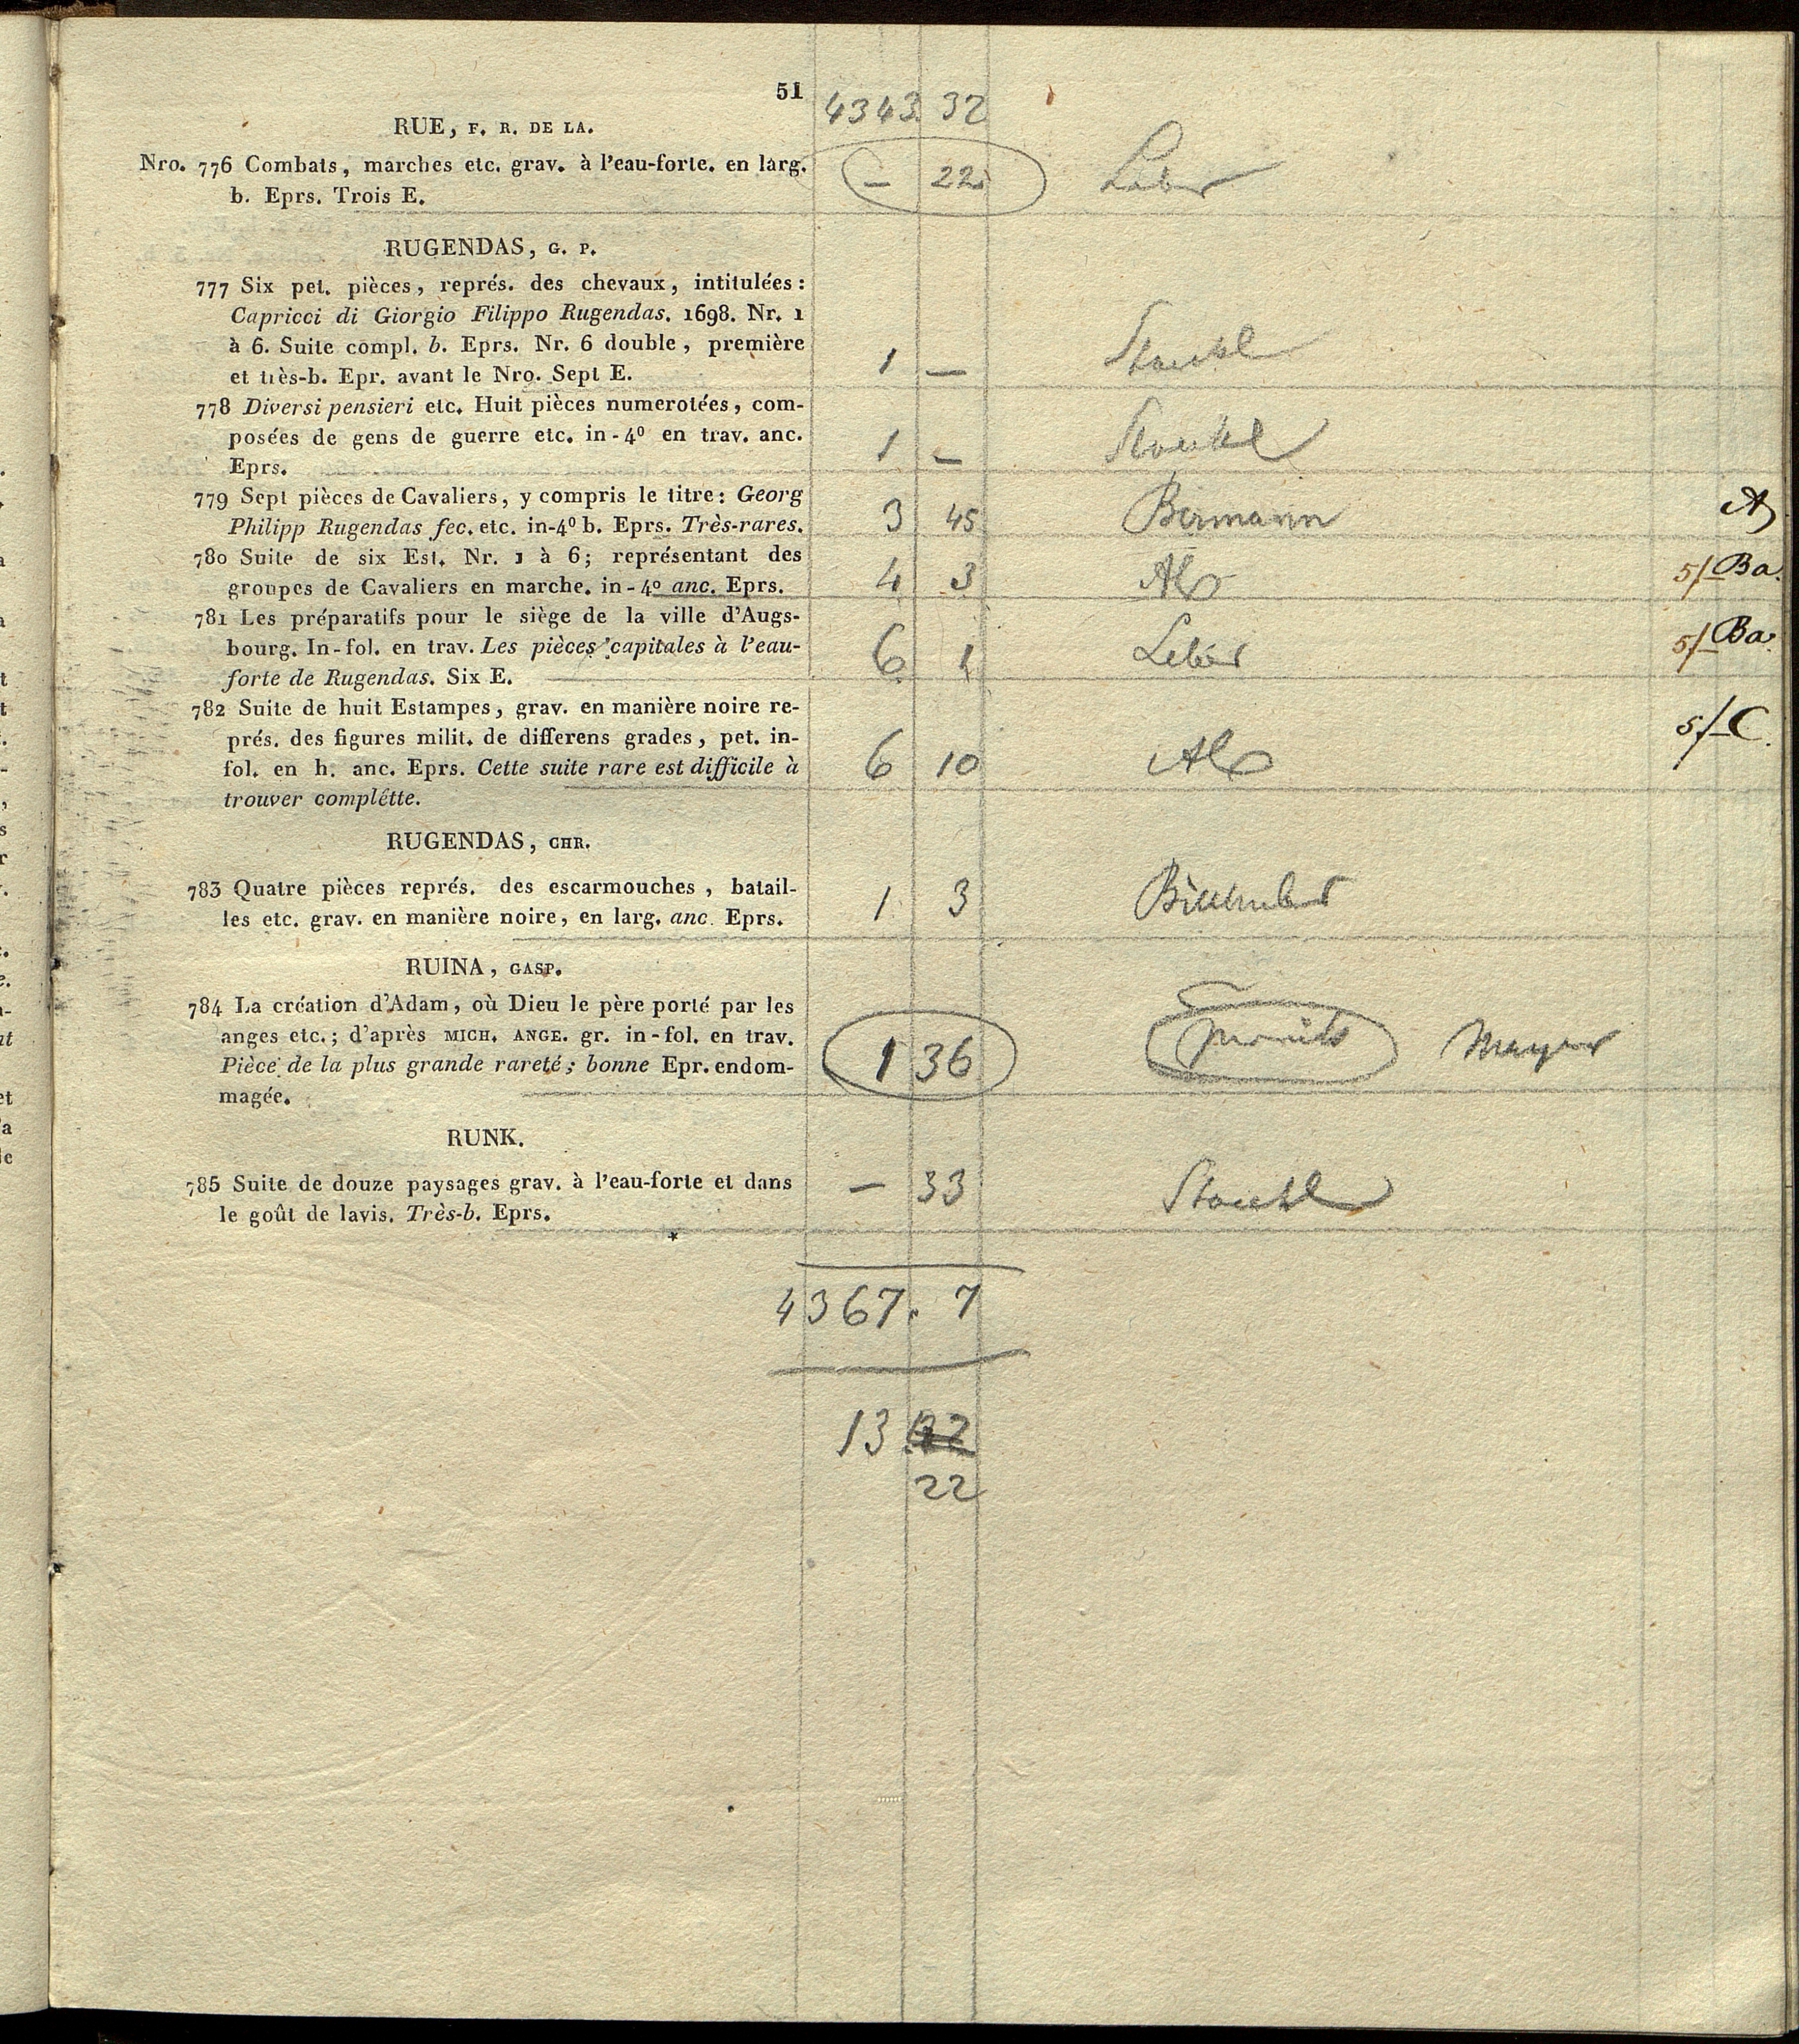 51
4343. 32
RUE, F. R. DE LA.
Nro. 776 Combats, marches etc. grav. à l'eau-forte. en larg.
b. Eprs. Trois E.
— 22
RUGENDAS, G. P.
777 Six pet. pièces, représ. des chevaux, intitulées:
Capricci di Giorgio Filippo Rugendas. 1698. Nr. 1
à 6. Suite compl. b. Eprs. Nr. 6 double, première
et très-b. Epr. avant le Nro. Sept E.
1 — Stoeckl
778 Diversi pensieri etc. Huit pièces numerotées, com-
posées de gens de guerre etc. in-4º en trav. anc.
Eprs.
1 — Stoeckl
779 Sept pièces de Cavaliers, y compris le titre: Georg
Philipp Rugendas fec. etc. in-4º b. Eprs. Très-rares.
3 45 Bermann A
780 Suite de six Est. Nr. 1 à 6; représentant des
groupes de Cavaliers en marche. in-4º anc. Eprs.
4 3 5/- Ba.
781 Les préparatifs pour le siège de la ville d'Augs-
bourg. In-fol. en trav. Les pièces capitales à l'eau-
forte de Rugendas. Six E.
6 1 5/- Ba.
782 Suite de huit Estampes, grav. en manière noire re-
prés. des figures milit. de differens grades, pet. in-
fol. en h. anc. Eprs. Cette suite rare est difficile à
trouver complétte.
6 10 5/- C.
RUGENDAS, CHR.
783 Quatre pièces représ. des escarmouches, batail-
les etc. grav. en manière noire, en larg. anc. Eprs.
1 3
RUINA, GASP.
784 La création d'Adam, où Dieu le père porté par les
anges etc.; d'après MICH. ANGE. gr. in-fol. en trav.
Pièce de la plus grande rareté; bonne Epr. endom-
magée.
1 36 Mayer
RUNK.
785 Suite de douze paysages grav. à l'eau-forte et dans
le goût de lavis. Très-b. Eprs.
— 33 Stoeckl
4367. 7
13
22